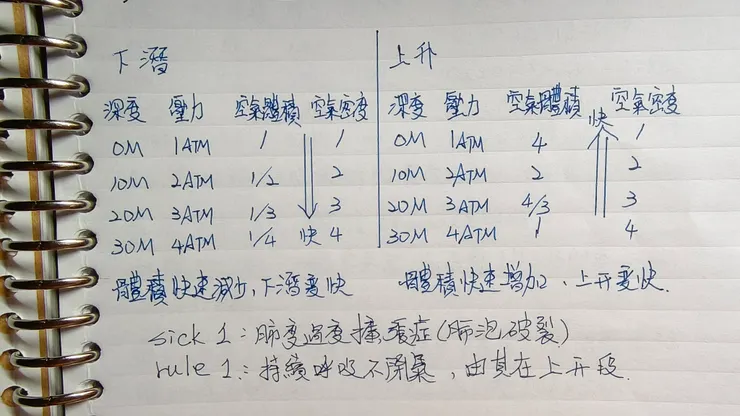 下潛 上升
深度 壓力 空氣體積 空氣密度 深度 壓力 空氣體積 空氣密度
快
0M 1ATM 1 1 0M 1ATM 4 1
10M 2ATM 1/2 2 10M 2ATM 2 2
20M 3ATM 1/3 3 20M 3ATM 4/3 3
30M 4ATM 1/4 快 4 30M 4ATM 1 4
體積快速減少，下潛變快 體積快速增加，上升變快.
sick 1：肺度過度擴張症(肺泡破裂)
rule 1：持續呼吸不閉氣，由其在上升段.